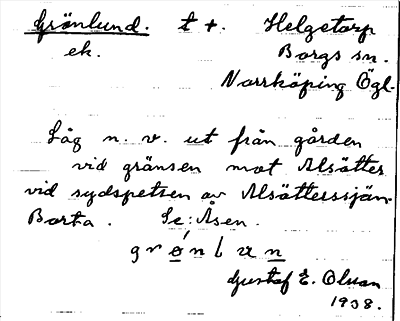 Grönlund. t +. Helgetorp
ek. Borgs sn.
Norrköping Ögl.
Låg n. v. ut från gården
vid gränsen mot Alsätter
vid sydspetsen av Alsätterssjön.
Borta. Se: Åsen.
grø´nlun
Gustaf E. Olsson
1938.